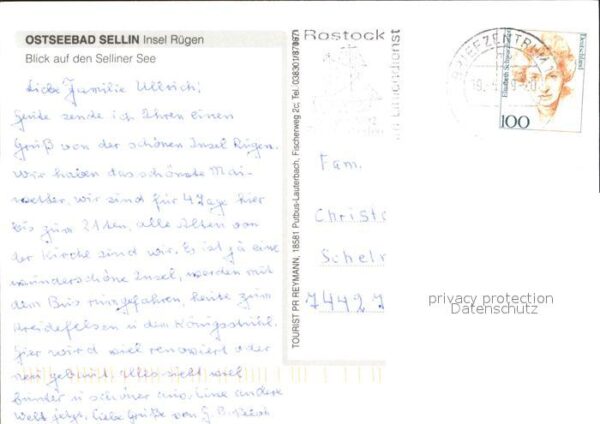 OSTSEEBAD SELLIN Insel Rügen
Blick auf den Selliner See
Liebe Familie Ullrich!
Heute sende ich Ihnen einen
Gruß von der schönen Insel Rügen.
Wir haben das schönste Mai-
wetter, wir sind für 4 Tage hier
bis zum 21ten, alle Alten von
der Kirche sind wir. Es ist ja eine
wunderschöne Insel, werden mit
dem Bus rumgefahren, heute zum
Kreidefelsen u dem Königsstuhl.
Hier wird viel renoviert oder
neu gebaut, alles sieht viel
bunter u schöner aus. Eine andere
Welt jetzt. Liebe Grüße von G.
TOURIST PR REYMANN, 18581 Putbus-Lauterbach, Fischerweg 2c, Tel. 038301/87867
Rostock
BRIEFZENTRUM
Deutschland
Elisabeth Schwarzhaupt
100
Fam.
Christo
Scheln
74427
privacy protection
Datenschutz